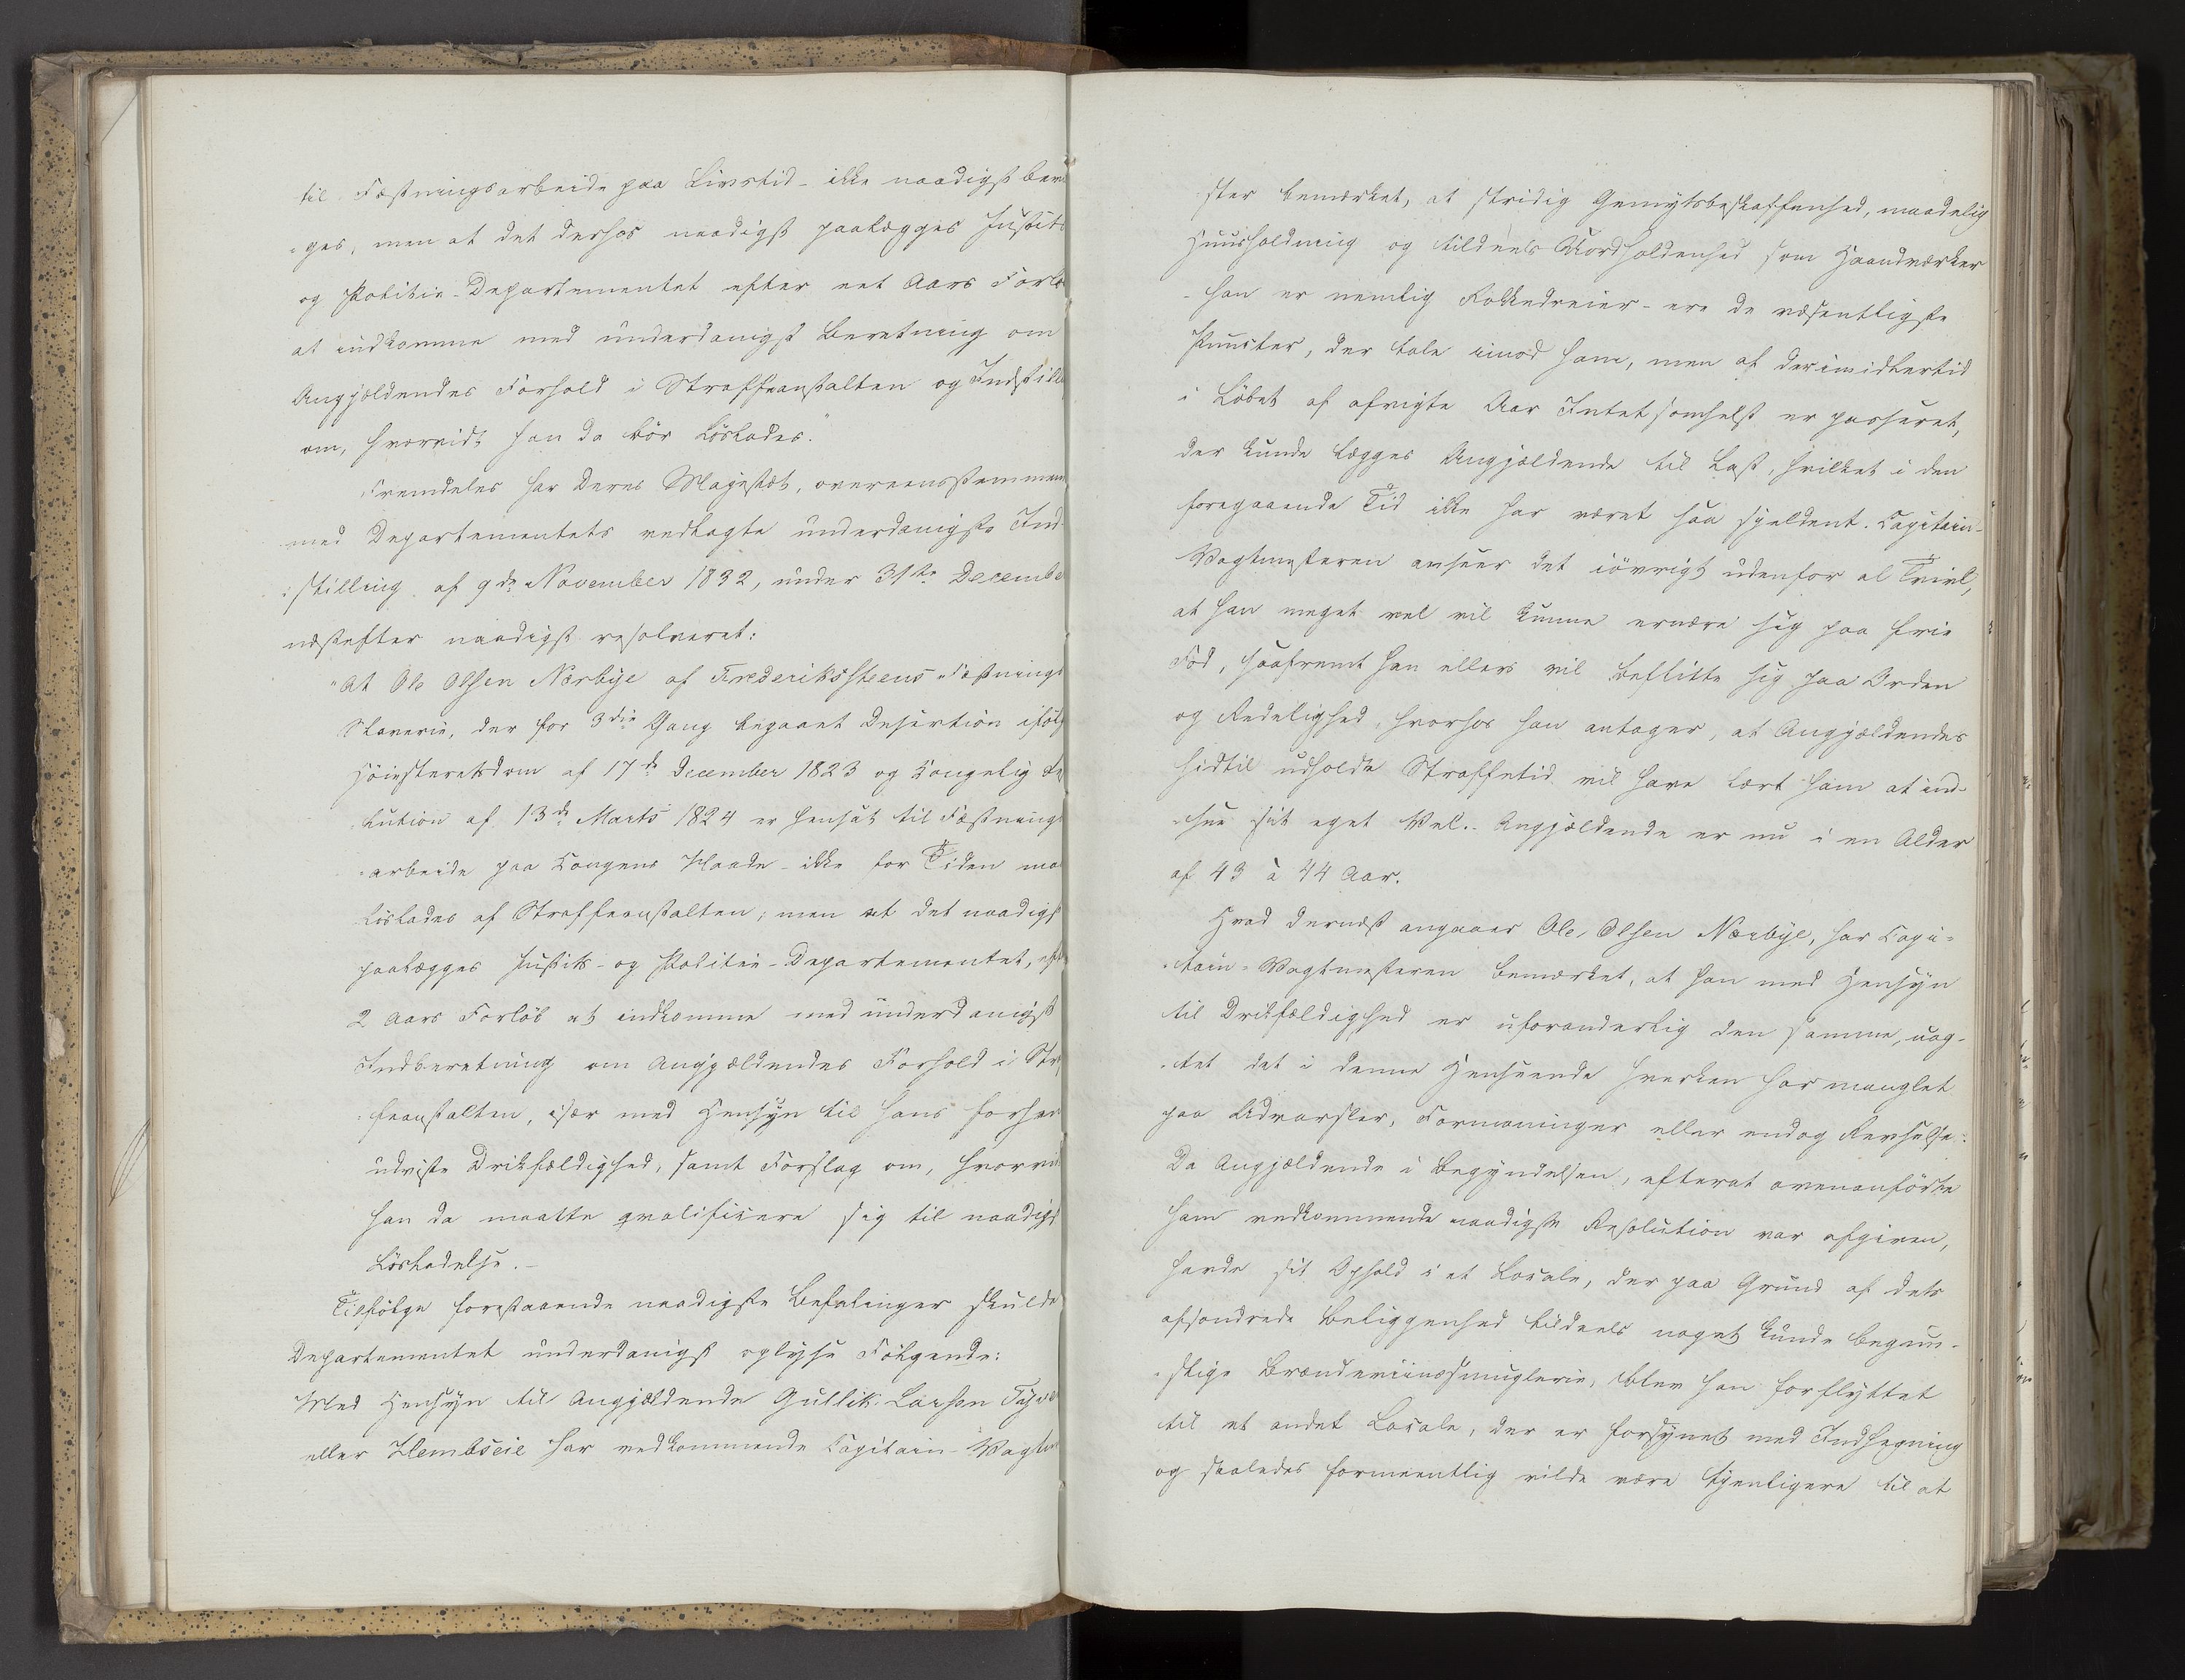 til Fæstningsarbeide paa Livstid – ikke naadigst bevil
=ges, men at det derhos naadigst paalægges Justits
og Politie-Departementet efter eet Aars Forløb
at indkomme med underdanigst Beretning om
Angjældendes Forhold i Straffeanstalten og Indstill
om, hvorvidt han da bør løslades."
Fremdeles har Deres Majestæt, overeensstemmen
med Departementets vedlagte underdanigste Ind-
:stilling af 9de November 1832, under 31te Decembe
næstefter naadigst resolveret:
"At Ole Olsen Nærbye af Frederikssteens Fæstnings
Slaverie, der for 3die Gang begaaet Desertion ifølg
Høiesteretsdom af 17de December 1823 og Kongelig Re
lution af 13de Marts 1824 er hensat til Fæstnings
=arbeide paa Kongens Naade – ikke for Tiden maa
løslades af Straffeanstalten; men at det naadigst
paalægges Justits- og Politie-Departementet, eft
2 Aars Forløb at indkomme med underdanigst
Indberetning om Angjældendes Forhold i Str
=feanstalten, især med Hensyn til hans forhen
udviste Drikfældighed, samt Forslag om, hvorvid
han da maatte qvalificere sig til naadigst
Løsladelse. –
Tilfølge forestaaende naadigste Befalinger skulde
Departementet underdanigst oplyse Følgende:
Med Hensyn til Angjældende Gullik Larsen
eller Hembseie har vedkommende Capitain-Vagtm
ster bemærket, at stridig Gemytsbeskaffenhed, maadelig
Huusholdning og tildeels Uordholdenhed som Haandværker
– han er nemlig Rokkedreier – ere de væsentligste
Puncter, der tale imod ham, men at der imidlertid
i Løbet af afvigte Aar Intet somhelst er passeret,
der kunde lægges Angjældende til Last, hvilket i den
foregaaende Tid ikke har været saa sjeldent. Capitain-
Vagtmesteren anseer det iøvrigt udenfor al Tvivl,
at han meget vel vil kunne ernære sig paa frie
Fod, saafremt han ellers vil beflitte sig paa Orden
og Redelighed, hvorhos han antager, at Angjældendes
hidtil udholdte Straffetid vil have lært ham at ind-
=see sit eget Vel. Angjældende er nu i en Alder
af 43 à 44 Aar.
Hvad dernæst angaaer Ole Olsen Nærbye, har Capi=
=tain-Vagtmesteren bemærket, at han med Hensyn
til Drikfældighed er uforanderlig den samme, uag-
=tet det i denne Henseende hverken har manglet
paa Advarsler, Formaninger eller endog Revselse.
Da Angjældende i Begyndelsen, efterat ovenanførte
ham vedkommende naadigste Resolution var afgiven,
havde sit Ophold i et Locale, der paa Grund af dets
afsondrede Beliggenhed tildeels noget kunde begun-
=stige Brændeviinssmuglerie, blev han forflyttet
til et andet Locale, der er forsynet med Indhegning
og saaledes formeentlig vilde være tjenligere til at